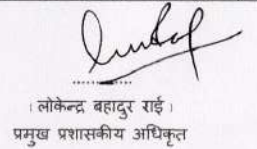 ..............
। लोकेन्द्र बहादुर राई ।
प्रमुख प्रशासकीय अधिकृत